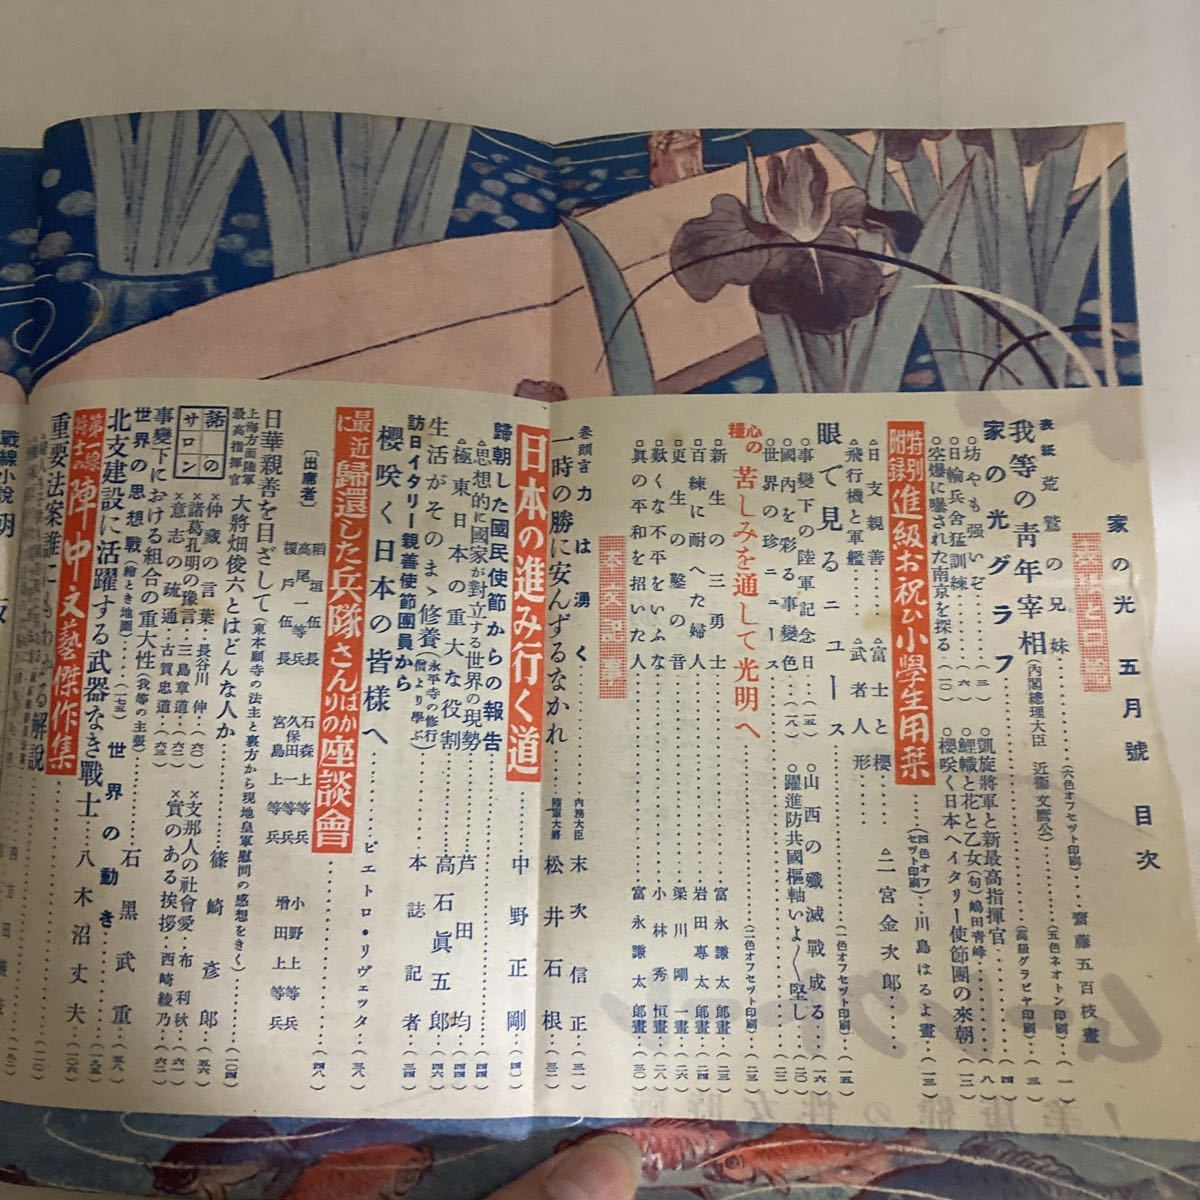 家の光 五月號 目次
表紙と口繪
表紙 荒鷲の兄妹……(六色オフセツト印刷)……齋藤五百枝畫(一)
我等の靑年宰相(內閣總理大臣 近衞文麿公)……(五色ネオトン印刷)…(三)
家の光グラフ……(高級グラビヤ印刷)…(四)
○坊やも强いぞ……(三) ○凱旋將軍と新最高指揮官……(八)
○日輪兵舍猛訓練……(六) ○鯉幟と花と乙女(句)嶋田靑峰……(一二)
○空爆に曝された南京を探る(一〇) ○櫻咲く日本へイタリー使節團の來朝
特別附錄 進級お祝ひ小學生用栞……(四色オフセツト印刷)…川島はるよ畫…(一三)
△日支親善……△富士と櫻
△飛行機と軍艦……△武者人形……△二宮金次郎
眼で見るニュース……(二色オフセツト印刷)…(一五)
○事變下の陸軍記念日(一五) ○山西の殲滅戰成る……(一六)
○國內を彩る事變色(一八) ○躍進防共國樞軸いよ〱堅し(二〇)
○世界の珍ニュース……(二二)
心の糧 苦しみを通して光明へ……(二色オフセツト印刷)…(二三)
□新生の三勇士……富永謙太郎畫(二三)
□百練に耐へた婦人……岩田專太郎畫(二四)
□更生の鑿の音……梁川剛一畫(二六)
□歎くな不平をいふな……小林秀恒畫(二八)
□眞の平和を招いた人……富永謙太郎畫(三〇)
本文記事
卷頭言 力は湧く……內務大臣 末次信正(三一)
一時の勝に安んずるなかれ 陸軍大將 松井石根(三二)
日本の進み行く道……中野正剛(四〇)
歸朝した國民使節からの報告……(四四)
△思想的に國家が對立する世界の現勢……芦田均(四四)
△極東日本の重大な役割……高石眞五郎(四六)
生活がそのまゝ修養(永平寺の修行僧より學ぶ)……本誌記者(三四)
訪日イタリー親善使節團員から
櫻咲く日本の皆樣へ……ピエトロ・リヴェッタ(三八)
最近に 歸還した兵隊さんばかりの座談會……(四八)
〔出席者〕
稻垣伍長 石森上等兵 小野上等兵
高尾一等兵 久保田一等兵 增田上等兵
榎戶伍長 宮島上等兵
日華親善を目ざして(東本願寺の法主と裏方から現地皇軍慰問の感想をきく)……(一〇四)
上海方面陸軍最高指揮官 大將畑俊六とはどんな人か……篠崎彥郎(五六)
話のサロン
×仲藏の言葉・長谷川伸(六一) ×支那人の社會愛・布利秋(六一)
×諸葛孔明の豫言・三島章道(六二) ×實のある挨拶・西崎綾乃(六二)
×意志の疏通・古賀殘星(六三)
事變下における組合の重大性(我等の主張)……石黑武重(五八)
世界の思想戰(繪とき地圖)…(一七五) 世界の動き
北支建設に活躍する武器なき戰士…八木沼丈夫(一〇六)
第一線將士の 陣中文藝傑作集……(一九五)
重要法案誰にもわかる解說……(一一〇)
戰線小說